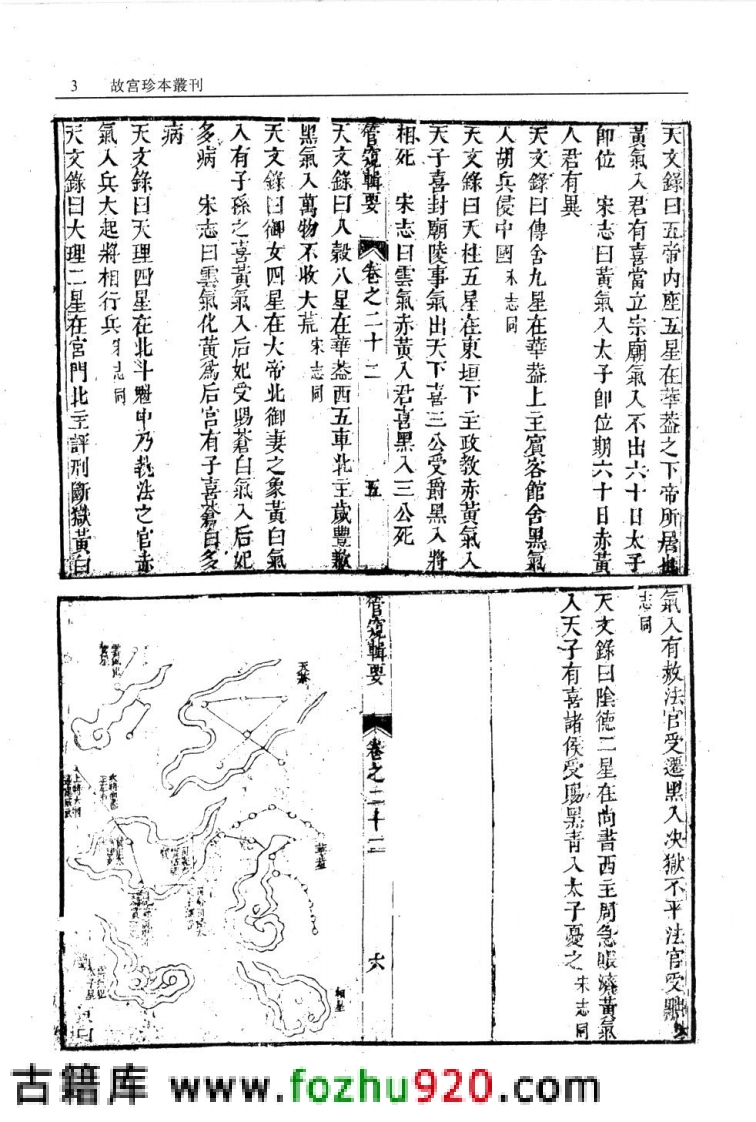 3 故宮珍本叢刊
天文錄曰五帝内座五星在華葢之下帝所居也
黃氣入君有喜當立宗廟氣入不出六十日太子
卽位 宋志曰黃氣入太子卽位期六十日赤黃
人君有異
天文錄曰傳舍九星在華葢上主賓客館舍黑氣
入胡兵侵中國宋志同
天文錄曰天柱五星在東垣下主政教赤黃氣入
天子喜封廟陵事氣出天下喜三公受爵黑入將
相死 宋志曰雲氣赤黃入君喜黑入三公死
管窺輯要 卷之二十二 五
天文錄曰八穀八星在華葢西五車北主歲豐歉
黑氣入萬物不收大荒宋志同
天文錄曰御女四星在大帝北御妻之象黃白氣
入有子孫之喜黃氣入后妃受賜蒼白氣入后妃
多病 宋志曰雲氣化黃爲后宮有子喜蒼白多
病
天文錄曰天理四星在北斗魁中乃執法之官赤
氣入兵大起將相行兵宋志同
天文錄曰大理二星在宮門北主評刑斷獄黃白
氣入有赦法官受遷黑入决獄不平法官受黜宋
志同
天文錄曰陰德二星在尚書西主周急賑濟黃氣
入天子有喜諸侯受賜黑青入太子憂之宋志同
管窺輯要 卷之二十二 六
天棓
華葢
相星
太子星
古籍库 www.fozhu920.com